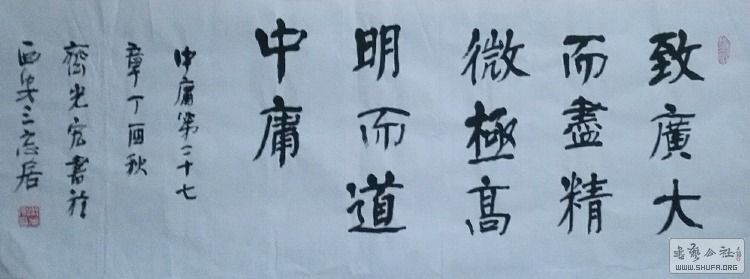 致廣大
而盡精
微極高
明而道
中庸
中庸第二十七
章丁酉秋
齊光宏書於
西安三忘居
書藝公社
WWW.SHUFR.ORG